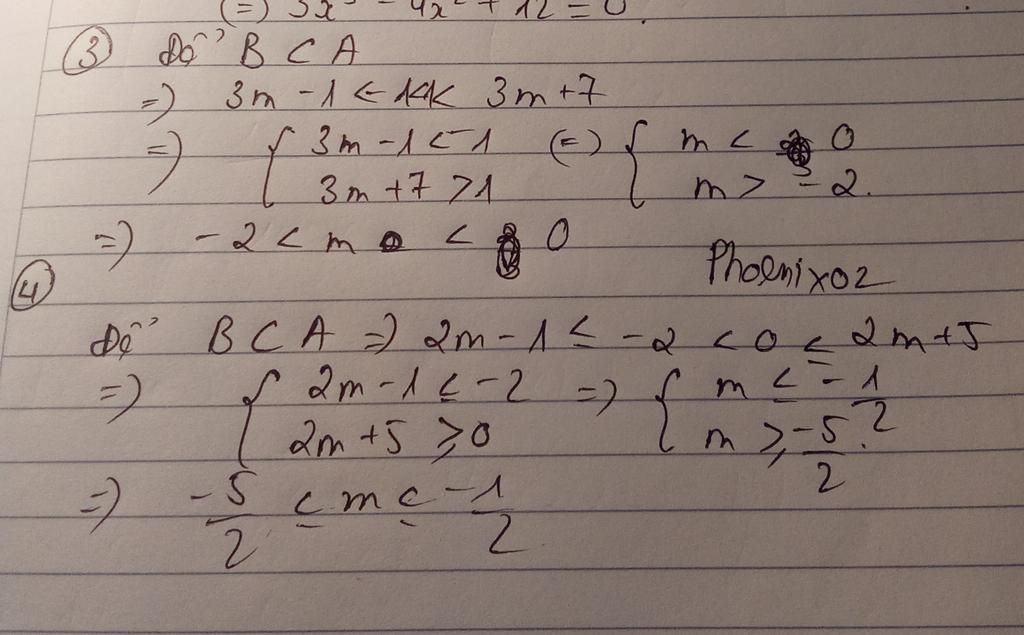 (=) 3x³ - 4x² + 12 = 0.
③ Để B ⊂ A
=) 3m - 1 < -1 < 1 < 3m+7
=) { 3m - 1 < -1 (=) { m < 0
3m + 7 > 1 m > -2.
=) -2 < m < 0
Phoenix02
④
Để B ⊂ A =) 2m - 1 ≤ -2 < 0 ≤ 2m+5
=) { 2m - 1 ≤ -2 =) { m ≤ -1/2
2m + 5 ≥ 0 m ≥ -5/2.
=) -5/2 ≤ m ≤ -1/2